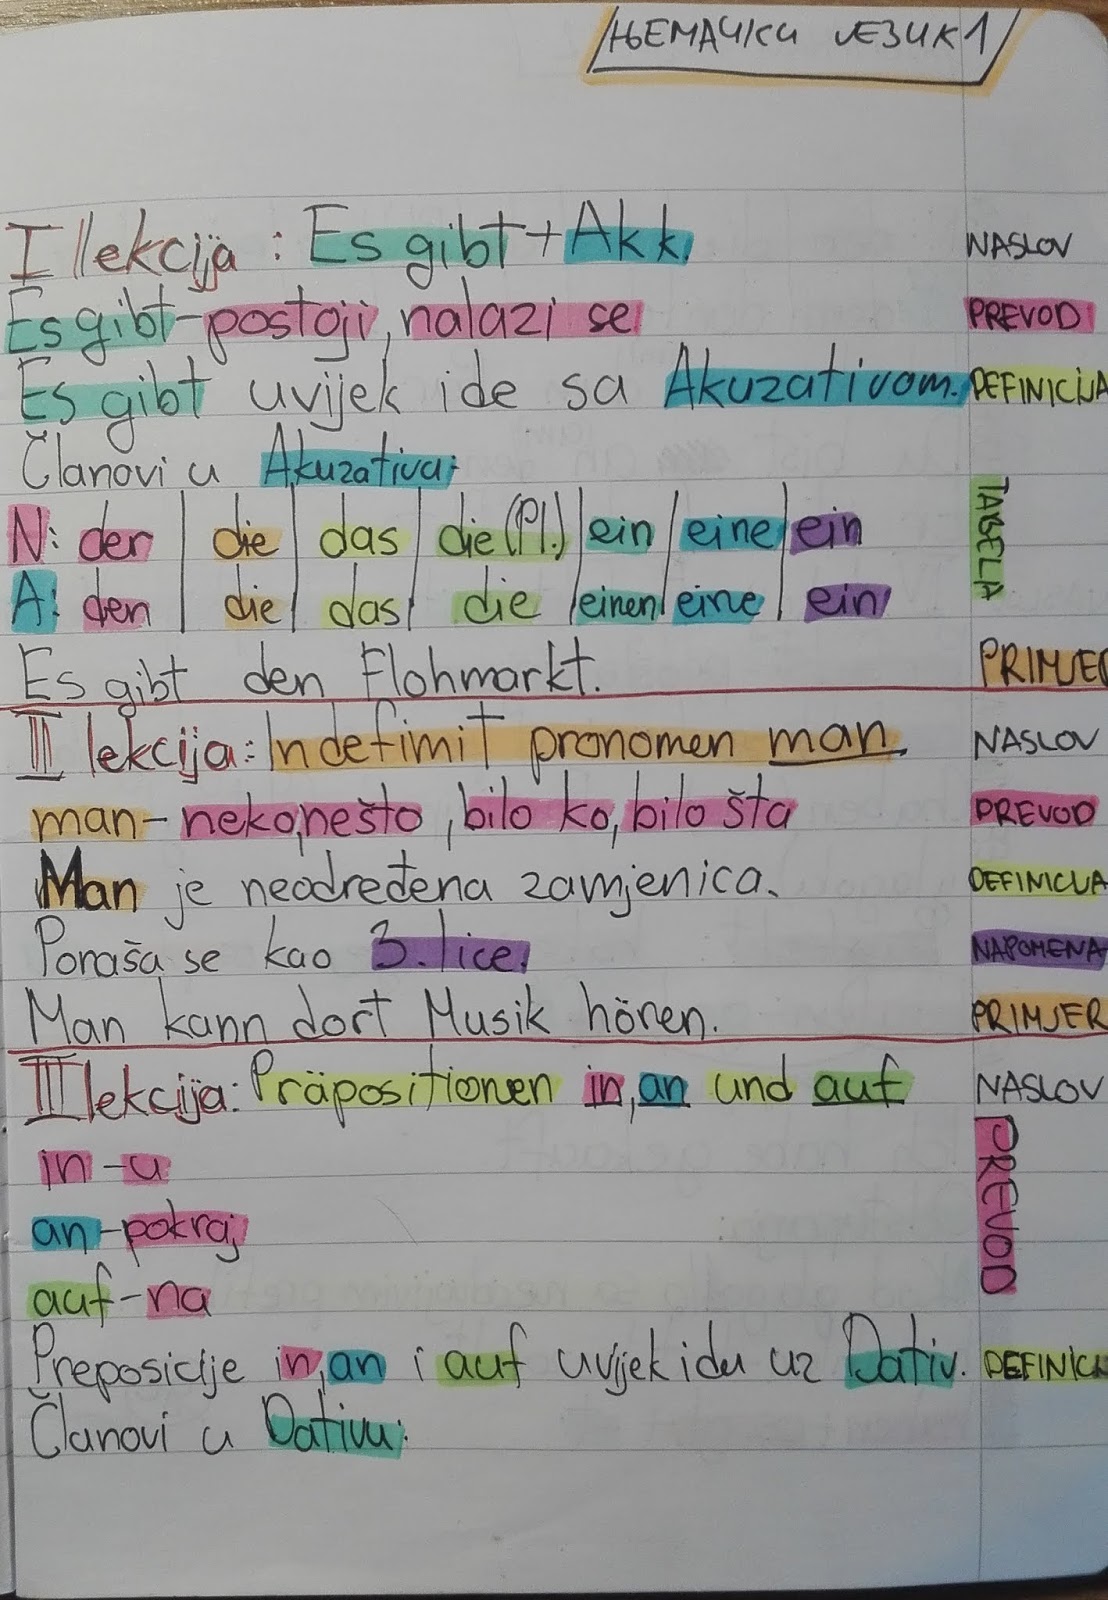 ЊЕМАЧКИ ЈЕЗИК 1
I lekcija: Es gibt + Akk. NASLOV
Es gibt - postoji, nalazi se PREVOD
Es gibt uvijek ide sa Akuzativom. DEFINICIJA
Članovi u Akuzativu:
TABELA
N: der | die | das | die (Pl.) | ein | eine | ein
A: den | die | das | die | einen | eine | ein
Es gibt den Flohmarkt. PRIMJE
II lekcija: Indefimit pronomen man. NASLOV
man - neko, nešto, bilo ko, bilo šta PREVOD
Man je neodređena zamjenica. DEFINICIJA
Ponaša se kao 3. lice. NAPOMENA
Man kann dort Musik hören. PRIMJER
III lekcija: Präpositionen in, an und auf NASLOV
PREVOD
in - u
an - pokraj
auf - na
Preposicije in, an i auf uvijek idu uz Dativ. DEFINICI
Članovi u Dativu: